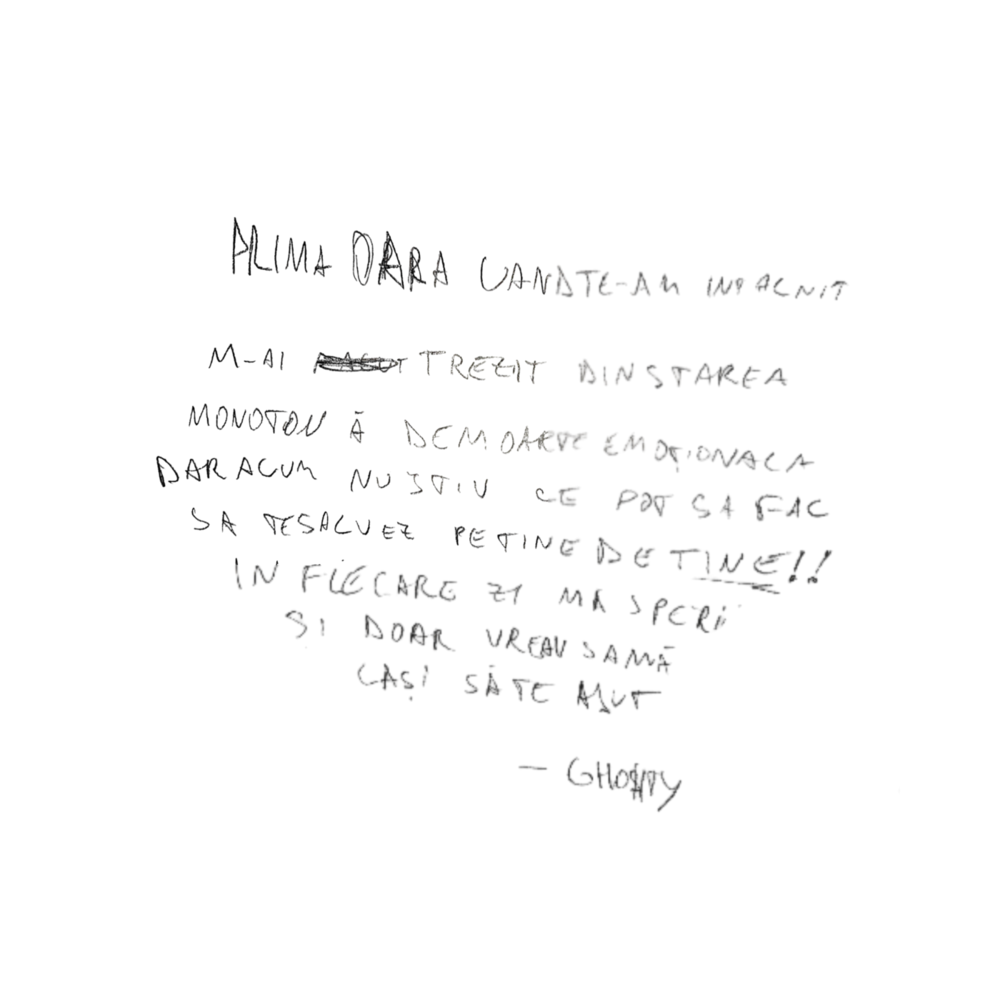 PRIMA OARA CAND TE-AM INTALNIT
M-AI TREZIT DIN STAREA
MONOTONĂ DE MOARTE EMOȚIONALA
DAR ACUM NU STIU CE POT SA FAC
SA TE SALVEZ PE TINE DE TINE!!
IN FIECARE ZI MA SPERII
SI DOAR VREAU SA MĂ
LAȘI SĂ TE AJUT
— GHOSTY